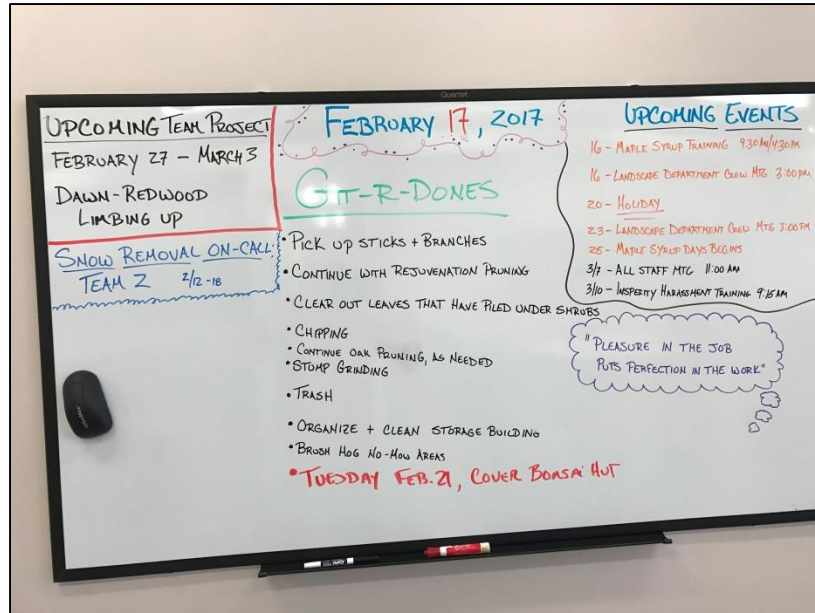 Quartet
UPCOMING TEAM PROJECT
FEBRUARY 27 – MARCH 3
DAWN-REDWOOD
LIMBING UP
SNOW REMOVAL ON-CALL:
TEAM 2 2/12-18
FEBRUARY 17, 2017
GIT-R-DONES
• PICK UP STICKS + BRANCHES
• CONTINUE WITH REJUVENATION PRUNING
• CLEAR OUT LEAVES THAT HAVE PILED UNDER SHRUBS
• CHIPPING
• CONTINUE OAK PRUNING, AS NEEDED
• STUMP GRINDING
• TRASH
• ORGANIZE + CLEAN STORAGE BUILDING
• BRUSH HOG NO-MOW AREAS
• TUESDAY FEB. 21, COVER BONSAI HUT
UPCOMING EVENTS
16 – MAPLE SYRUP TRAINING 9:30AM/4:30PM
16 – LANDSCAPE DEPARTMENT CREW MTG 3:00PM
20 – HOLIDAY
23 – LANDSCAPE DEPARTMENT CREW MTG 3:00PM
25 – MAPLE SYRUP DAYS BEGINS
3/7 – ALL STAFF MTG 11:00 AM
3/10 – INSPERITY HARASSMENT TRAINING 9:15AM
"PLEASURE IN THE JOB
PUTS PERFECTION IN THE WORK"